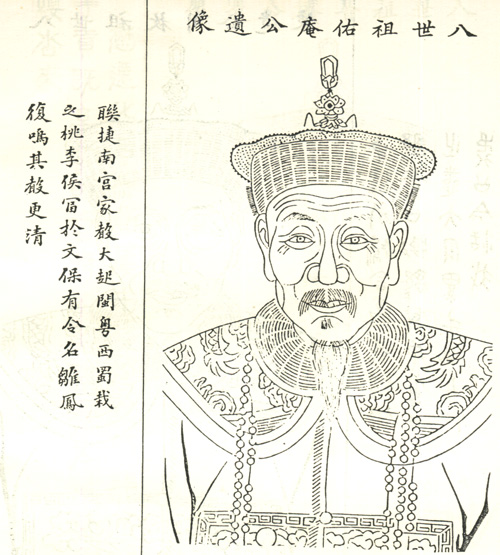 八世祖佑庵公遺像
聯捷南宮家教大起閩粵西蜀栽
之桃李侯冨於文保有令名雛鳳
復鳴其教更清